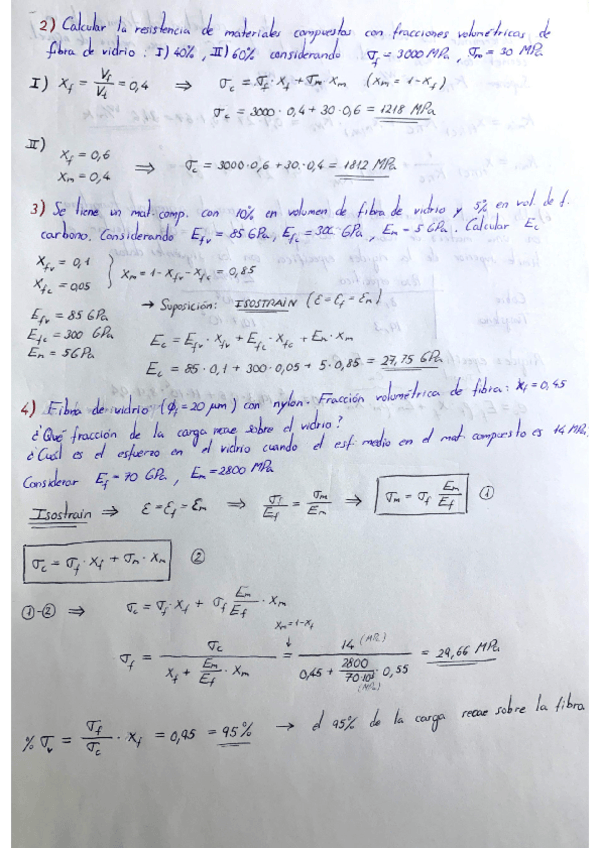 2) Calcular la resistencia de materiales compuestos con fracciones volumétricas de
fibra de vidrio : I) 40% , II) 60% considerando σf = 3000 MPa, σm = 30 MPa
I) Xf = Vf/Vt = 0,4 ⇒ σc = σf · Xf + σm · Xm (Xm = 1-Xf)
σc = 3000 · 0,4 + 30 · 0,6 = 1218 MPa
II)
Xf = 0,6
Xm = 0,4 ⇒ σc = 3000 · 0,6 + 30 · 0,4 = 1812 MPa
3) Se tiene un mat. comp. con 10% en volumen de fibra de vidrio y 5% en vol. de f.
carbono. Considerando Efv = 85 GPa, Efc = 300 GPa, Em = 5 GPa. Calcular Ec
Xfv = 0,1
Xfc = 0,05 } Xm = 1 - Xfv - Xfc = 0,85
→ Suposición: ISOSTRAIN (ε = εf = εm)
Efv = 85 GPa
Efc = 300 GPa
Em = 5 GPa
Ec = Efv · Xfv + Efc · Xfc + Em · Xm
Ec = 85 · 0,1 + 300 · 0,05 + 5 · 0,85 = 27,75 GPa
4) Fibra de vidrio (ϕf = 20 μm) con nylon. Fracción volumétrica de fibra: Xf = 0,45
¿Qué fracción de la carga recae sobre el vidrio?
¿Cuál es el esfuerzo en el vidrio cuando el esf. medio en el mat. compuesto es 14 MPa,
Considerar Ef = 70 GPa, Em = 2800 MPa
Isostrain ⇒ ε = εf = εm ⇒ σf/Ef = σm/Em ⇒ σm = σf Em/Ef ①
σc = σf · Xf + σm · Xm ②
①-② ⇒ σc = σf · Xf + σf Em/Ef · Xm
Xm = 1-Xf
↓
σf = σc / (Xf + Em/Ef · Xm) = 14 (MPa) / (0,45 + 2800/70·10³ (MPa) · 0,55) = 29,66 MPa
% σv = σf/σc · Xf = 0,95 = 95% → el 95% de la carga recae sobre la fibra